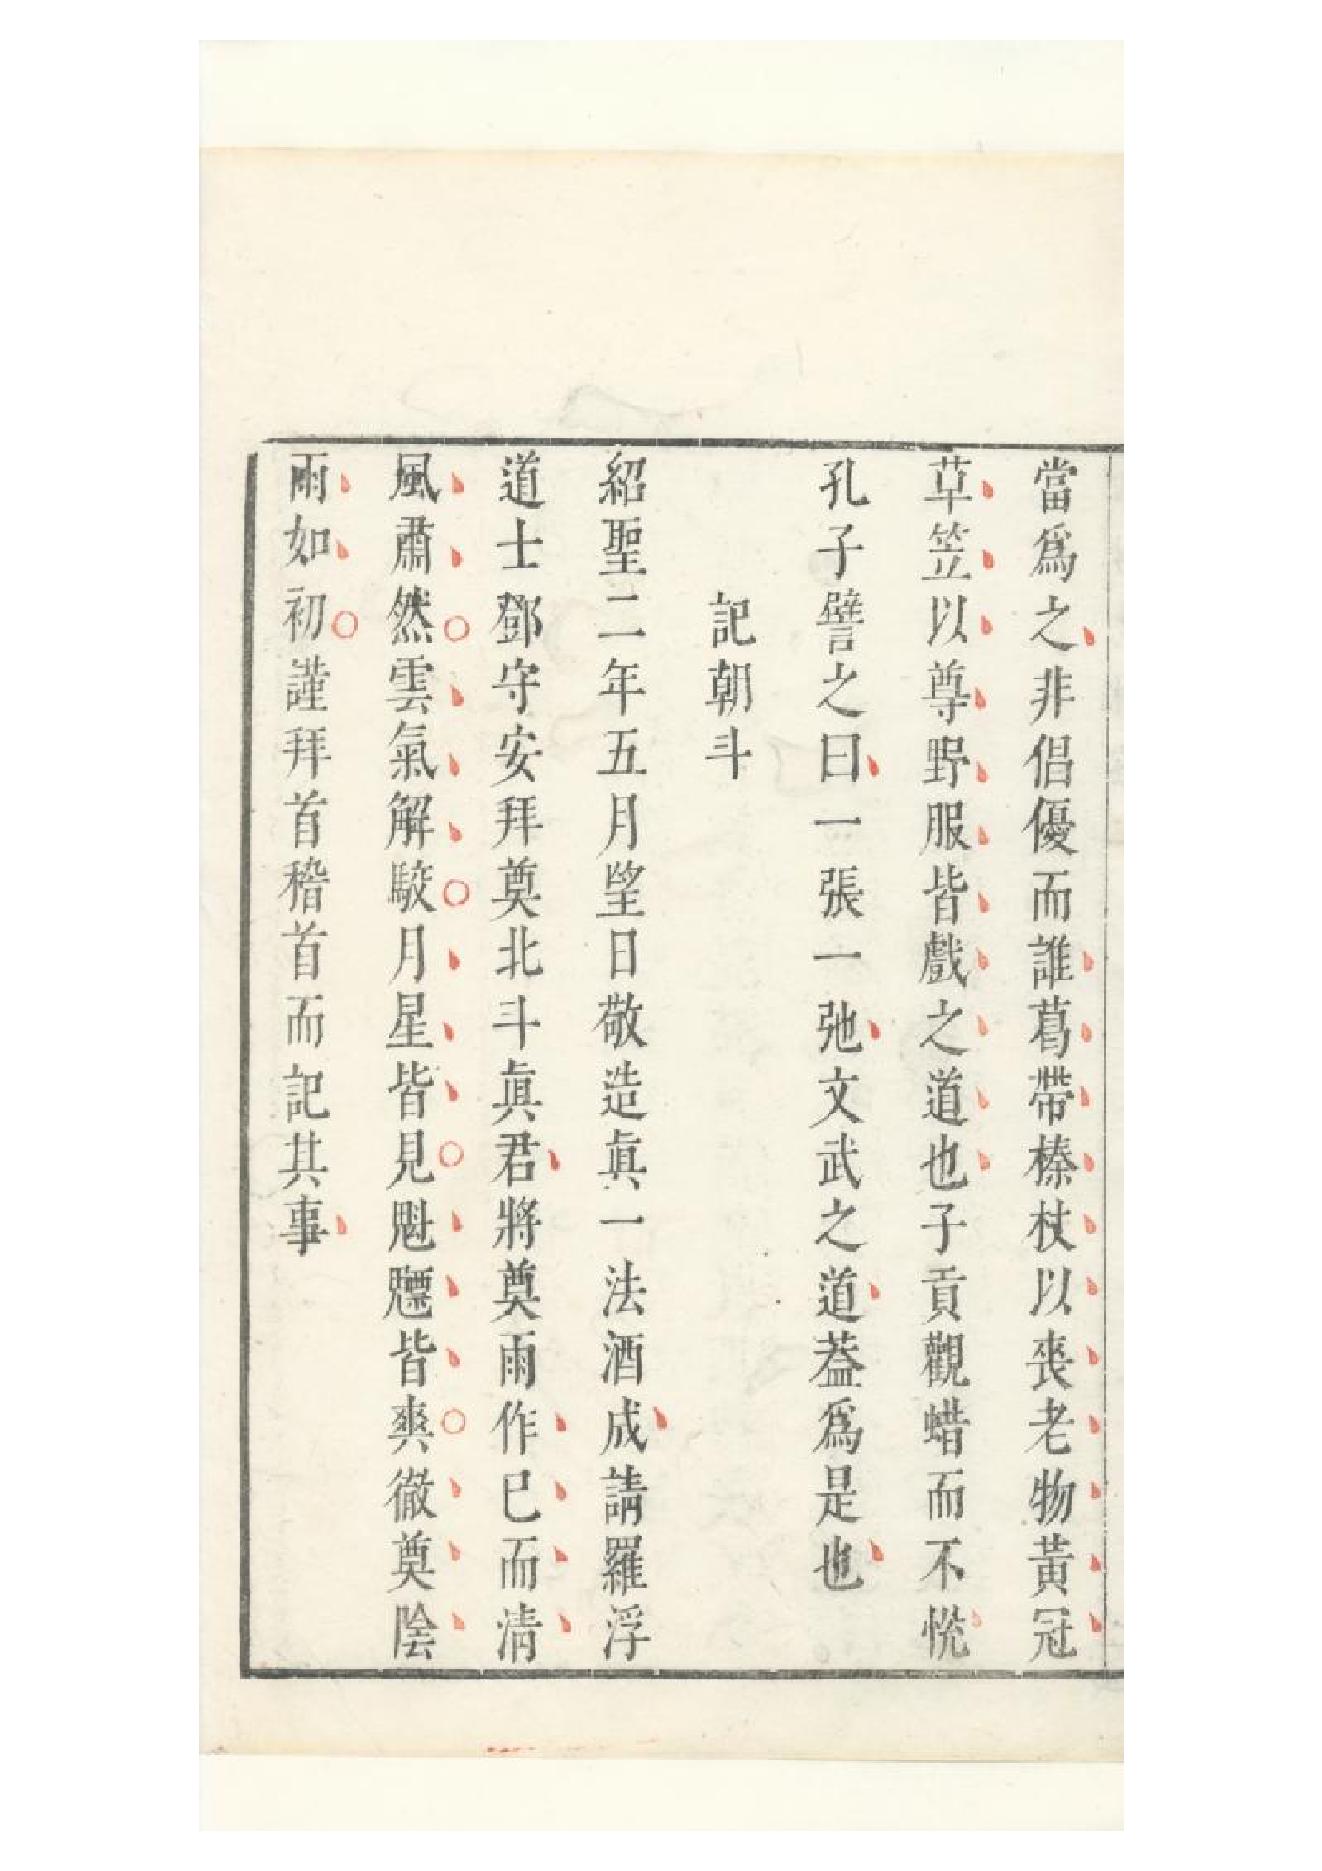 當爲之非倡優而誰葛帶榛杖以喪老物黃冠
草笠以尊野服皆戲之道也子貢觀蜡而不恱
孔子譬之曰一張一弛文武之道葢爲是也
記朝斗
紹聖二年五月望日敬造眞一法酒成請羅浮
道士鄧守安拜奠北斗眞君將奠雨作已而清
風肅然雲氣解駮月星皆見魁魒皆爽徹奠陰
雨如初謹拜首稽首而記其事